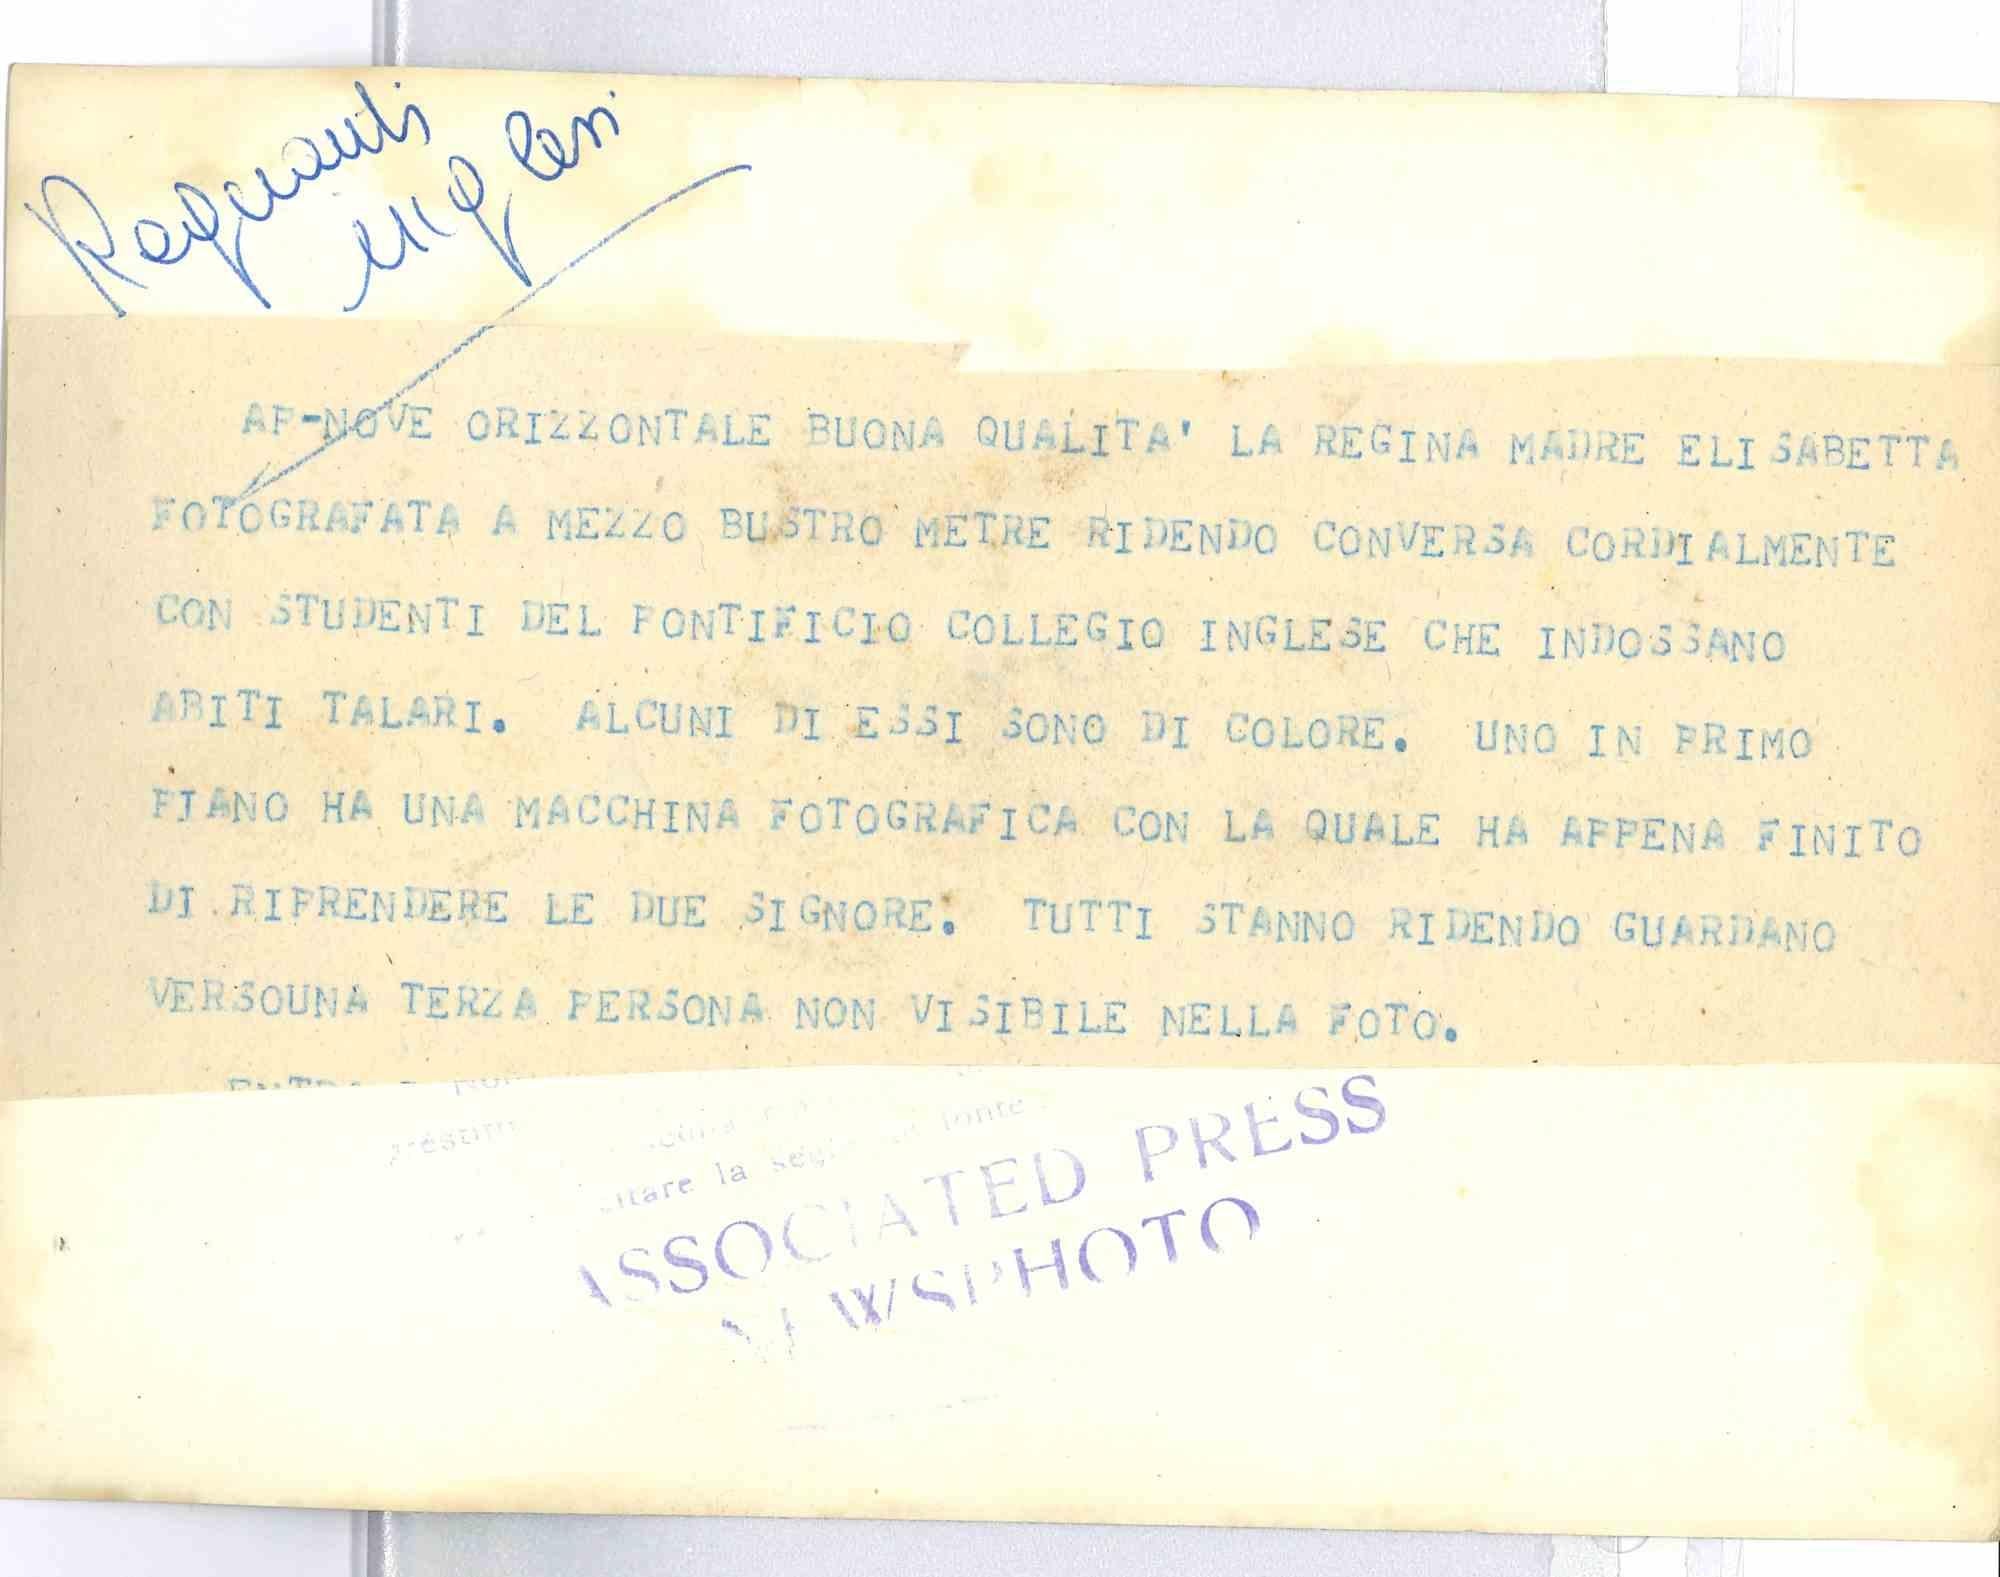 Regnanti
inglesi
AP-NOVE ORIZZONTALE BUONA QUALITA' LA REGINA MADRE ELISABETTA
FOTOGRAFATA A MEZZO BUSTRO METRE RIDENDO CONVERSA CORDIALMENTE
CON STUDENTI DEL PONTIFICIO COLLEGIO INGLESE CHE INDOSSANO
ABITI TALARI. ALCUNI DI ESSI SONO DI COLORE. UNO IN PRIMO
PIANO HA UNA MACCHINA FOTOGRAFICA CON LA QUALE HA APPENA FINITO
DI RIPRENDERE LE DUE SIGNORE. TUTTI STANNO RIDENDO GUARDANO
VERSOUNA TERZA PERSONA NON VISIBILE NELLA FOTO.
la fonte
ASSOCIATED PRESS
NEWSPHOTO